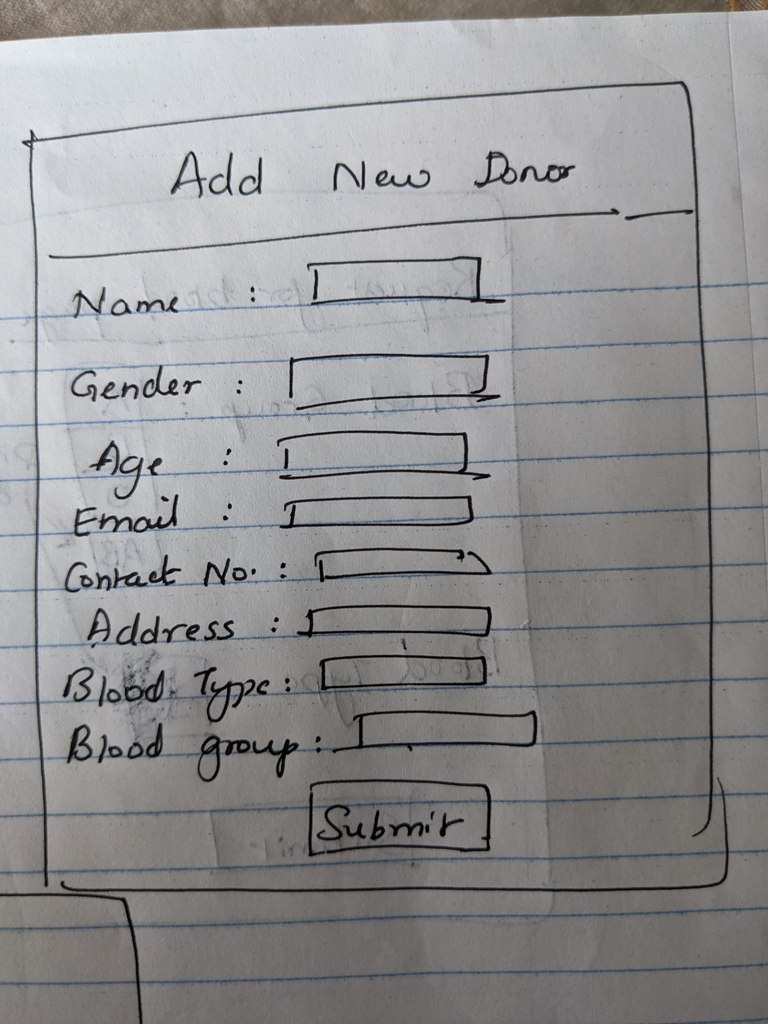 Add New Donor
Name :
Gender :
Age :
Email :
Contact No. :
Address :
Blood Type :
Blood group :
Submit